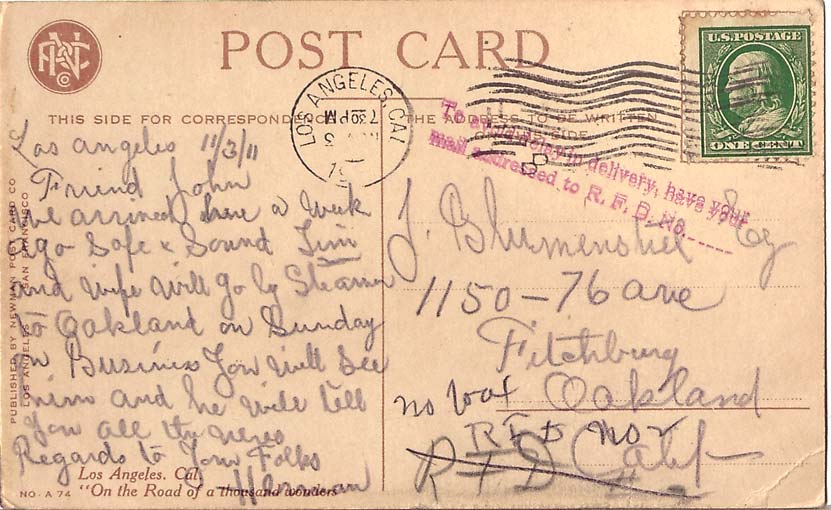 POST CARD
U.S. POSTAGE
ONE CENT
LOS ANGELES, CAL
7 30 PM
NOV 3
THIS SIDE FOR CORRESPONDENCE
THE ADDRESS TO BE WRITTEN
ON THIS SIDE
To avoid delay in delivery, have your
mail addressed to R. F. D. No.
Los Angeles 11/3/11
Friend John
We arrived here a Week
ago Safe & Sound Jim
and Wife Will go by Steamer
to Oakland on Sunday
on Business You Will See
him and he will tell
You all the news
Regards to Your Folks
Herman
J. Blumenstiel Esq
1150-76 ave
Fitchburg
Oakland
no box
RFD No 2
RFD Calif
# 2
PUBLISHED BY NEWMAN POST CARD CO
LOS ANGELES SAN FRANCISCO
Los Angeles. Cal.
NO. A 74 "On the Road of a thousand wonders"